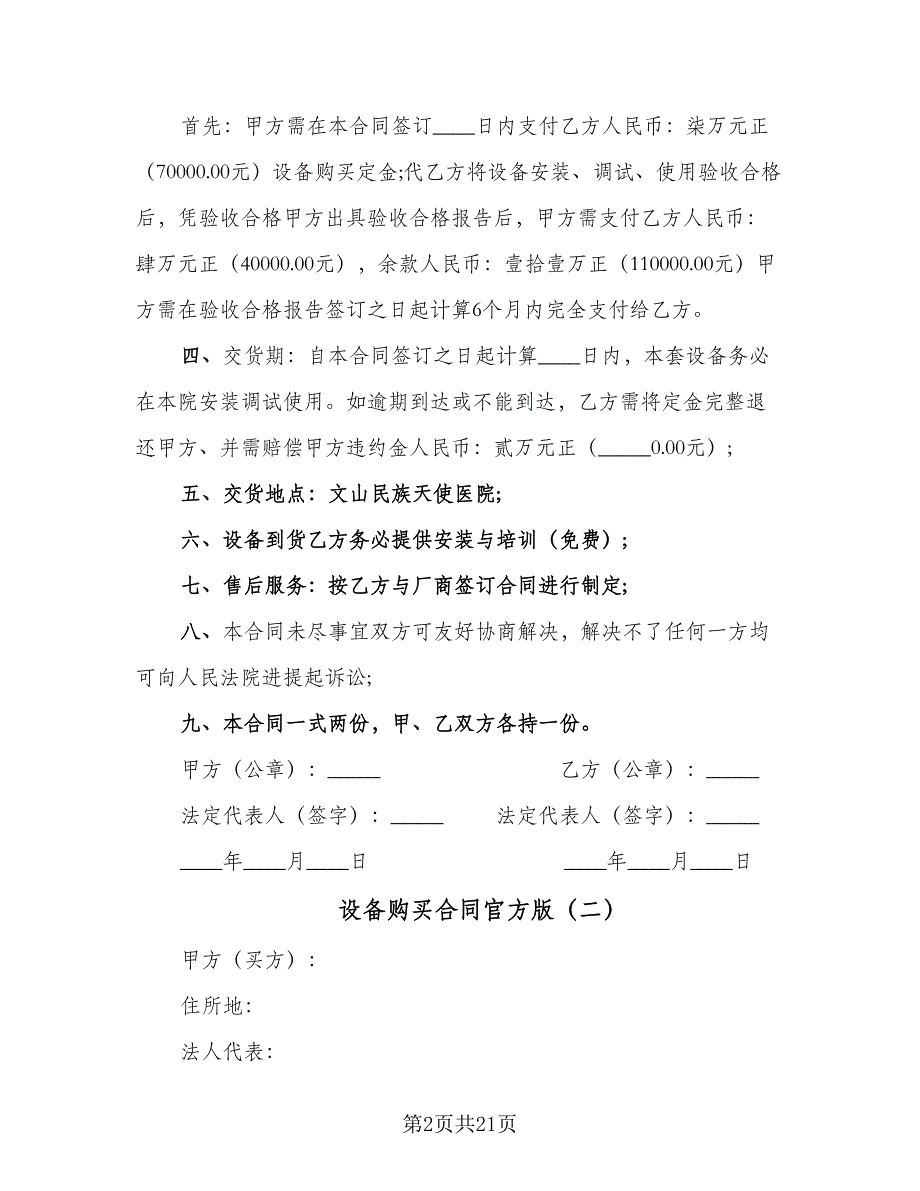 首先：甲方需在本合同签订____日内支付乙方人民币：柒万元正
（70000.00元）设备购买定金;代乙方将设备安装、调试、使用验收合格
后，凭验收合格甲方出具验收合格报告后，甲方需支付乙方人民币：
肆万元正（40000.00元），余款人民币：壹拾壹万正（110000.00元）甲
方需在验收合格报告签订之日起计算6个月内完全支付给乙方。
四、交货期：自本合同签订之日起计算____日内，本套设备务必
在本院安装调试使用。如逾期到达或不能到达，乙方需将定金完整退
还甲方、并需赔偿甲方违约金人民币：贰万元正（_____0.00元）;
五、交货地点：文山民族天使医院;
六、设备到货乙方务必提供安装与培训（免费）;
七、售后服务：按乙方与厂商签订合同进行制定;
八、本合同未尽事宜双方可友好协商解决，解决不了任何一方均
可向人民法院进提起诉讼;
九、本合同一式两份，甲、乙双方各持一份。
甲方（公章）：_____ 乙方（公章）：_____
法定代表人（签字）：_____ 法定代表人（签字）：_____
____年____月____日 ____年____月____日
设备购买合同官方版（二）
甲方（买方）：
住所地：
法人代表：
第2页共21页